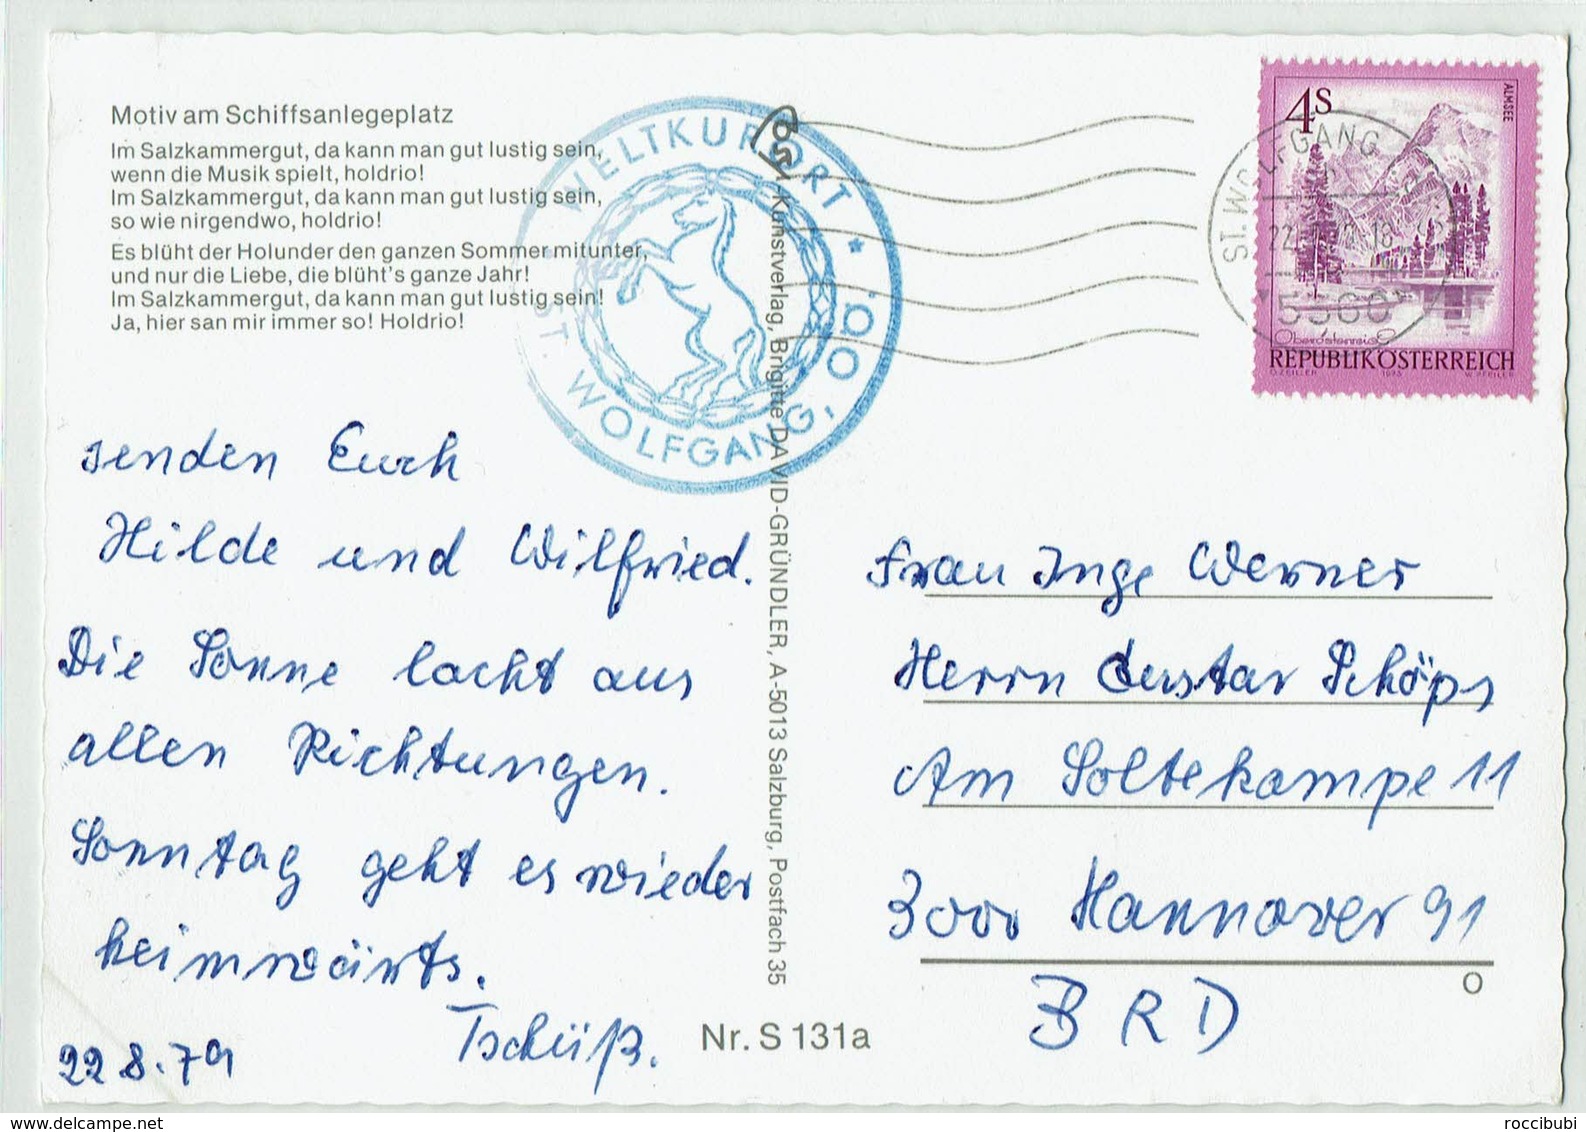 Motiv am Schiffsanlegeplatz
Im Salzkammergut, da kann man gut lustig sein,
wenn die Musik spielt, holdrio!
Im Salzkammergut, da kann man gut lustig sein,
so wie nirgendwo, holdrio!
Es blüht der Holunder den ganzen Sommer mitunter,
und nur die Liebe, die blüht's ganze Jahr!
Im Salzkammergut, da kann man gut lustig sein!
Ja, hier san mir immer so! Holdrio!
WELTKURORT * ST. WOLFGANG, OÖ.
-Kunstverlag, Brigitte DAVID-GRÜNDLER, A-5013 Salzburg, Postfach 35
ST. WOLFGANG
5360
Oberösterreich
4S
ALMSEE
REPUBLIK ÖSTERREICH
O. ZEILLER 1973 W. PFEILER
senden Euch
Hilde und Wilfried.
Die Sonne lacht aus
allen Richtungen.
Sonntag geht es wieder
heimwärts.
Tschüß.
22.8.79
Frau Inge Werner
Herrn Gustav Schöps
Am Soltekampe 11
3000 Hannover 91
BRD
O
Nr. S 131a
delcampe.net
roccibubi